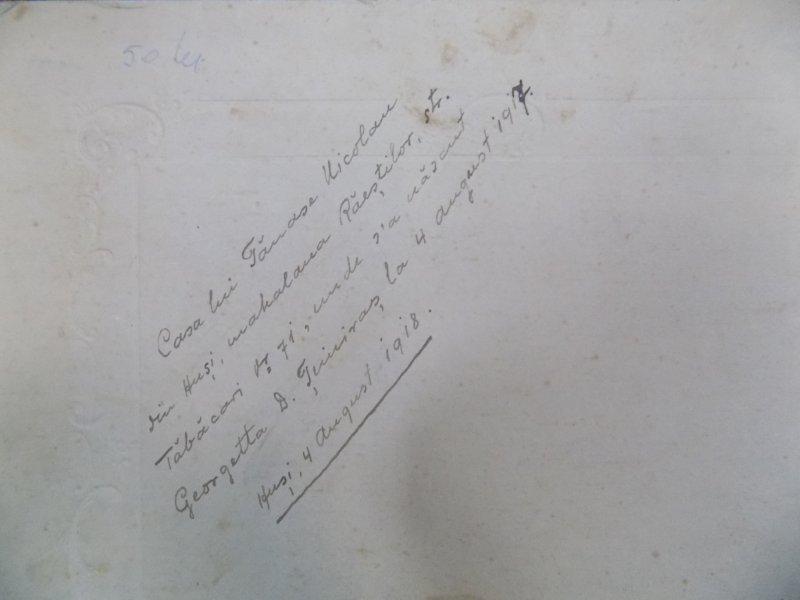 50 lei
Casa lui Tănase Nicolau
din Huși, mahalaua Răeștilor, str.
Tăbăcari No 71, unde s'a născut
Georgetta D. Ținiraș, la 4 August 1917.
Huși, 4 August 1918.